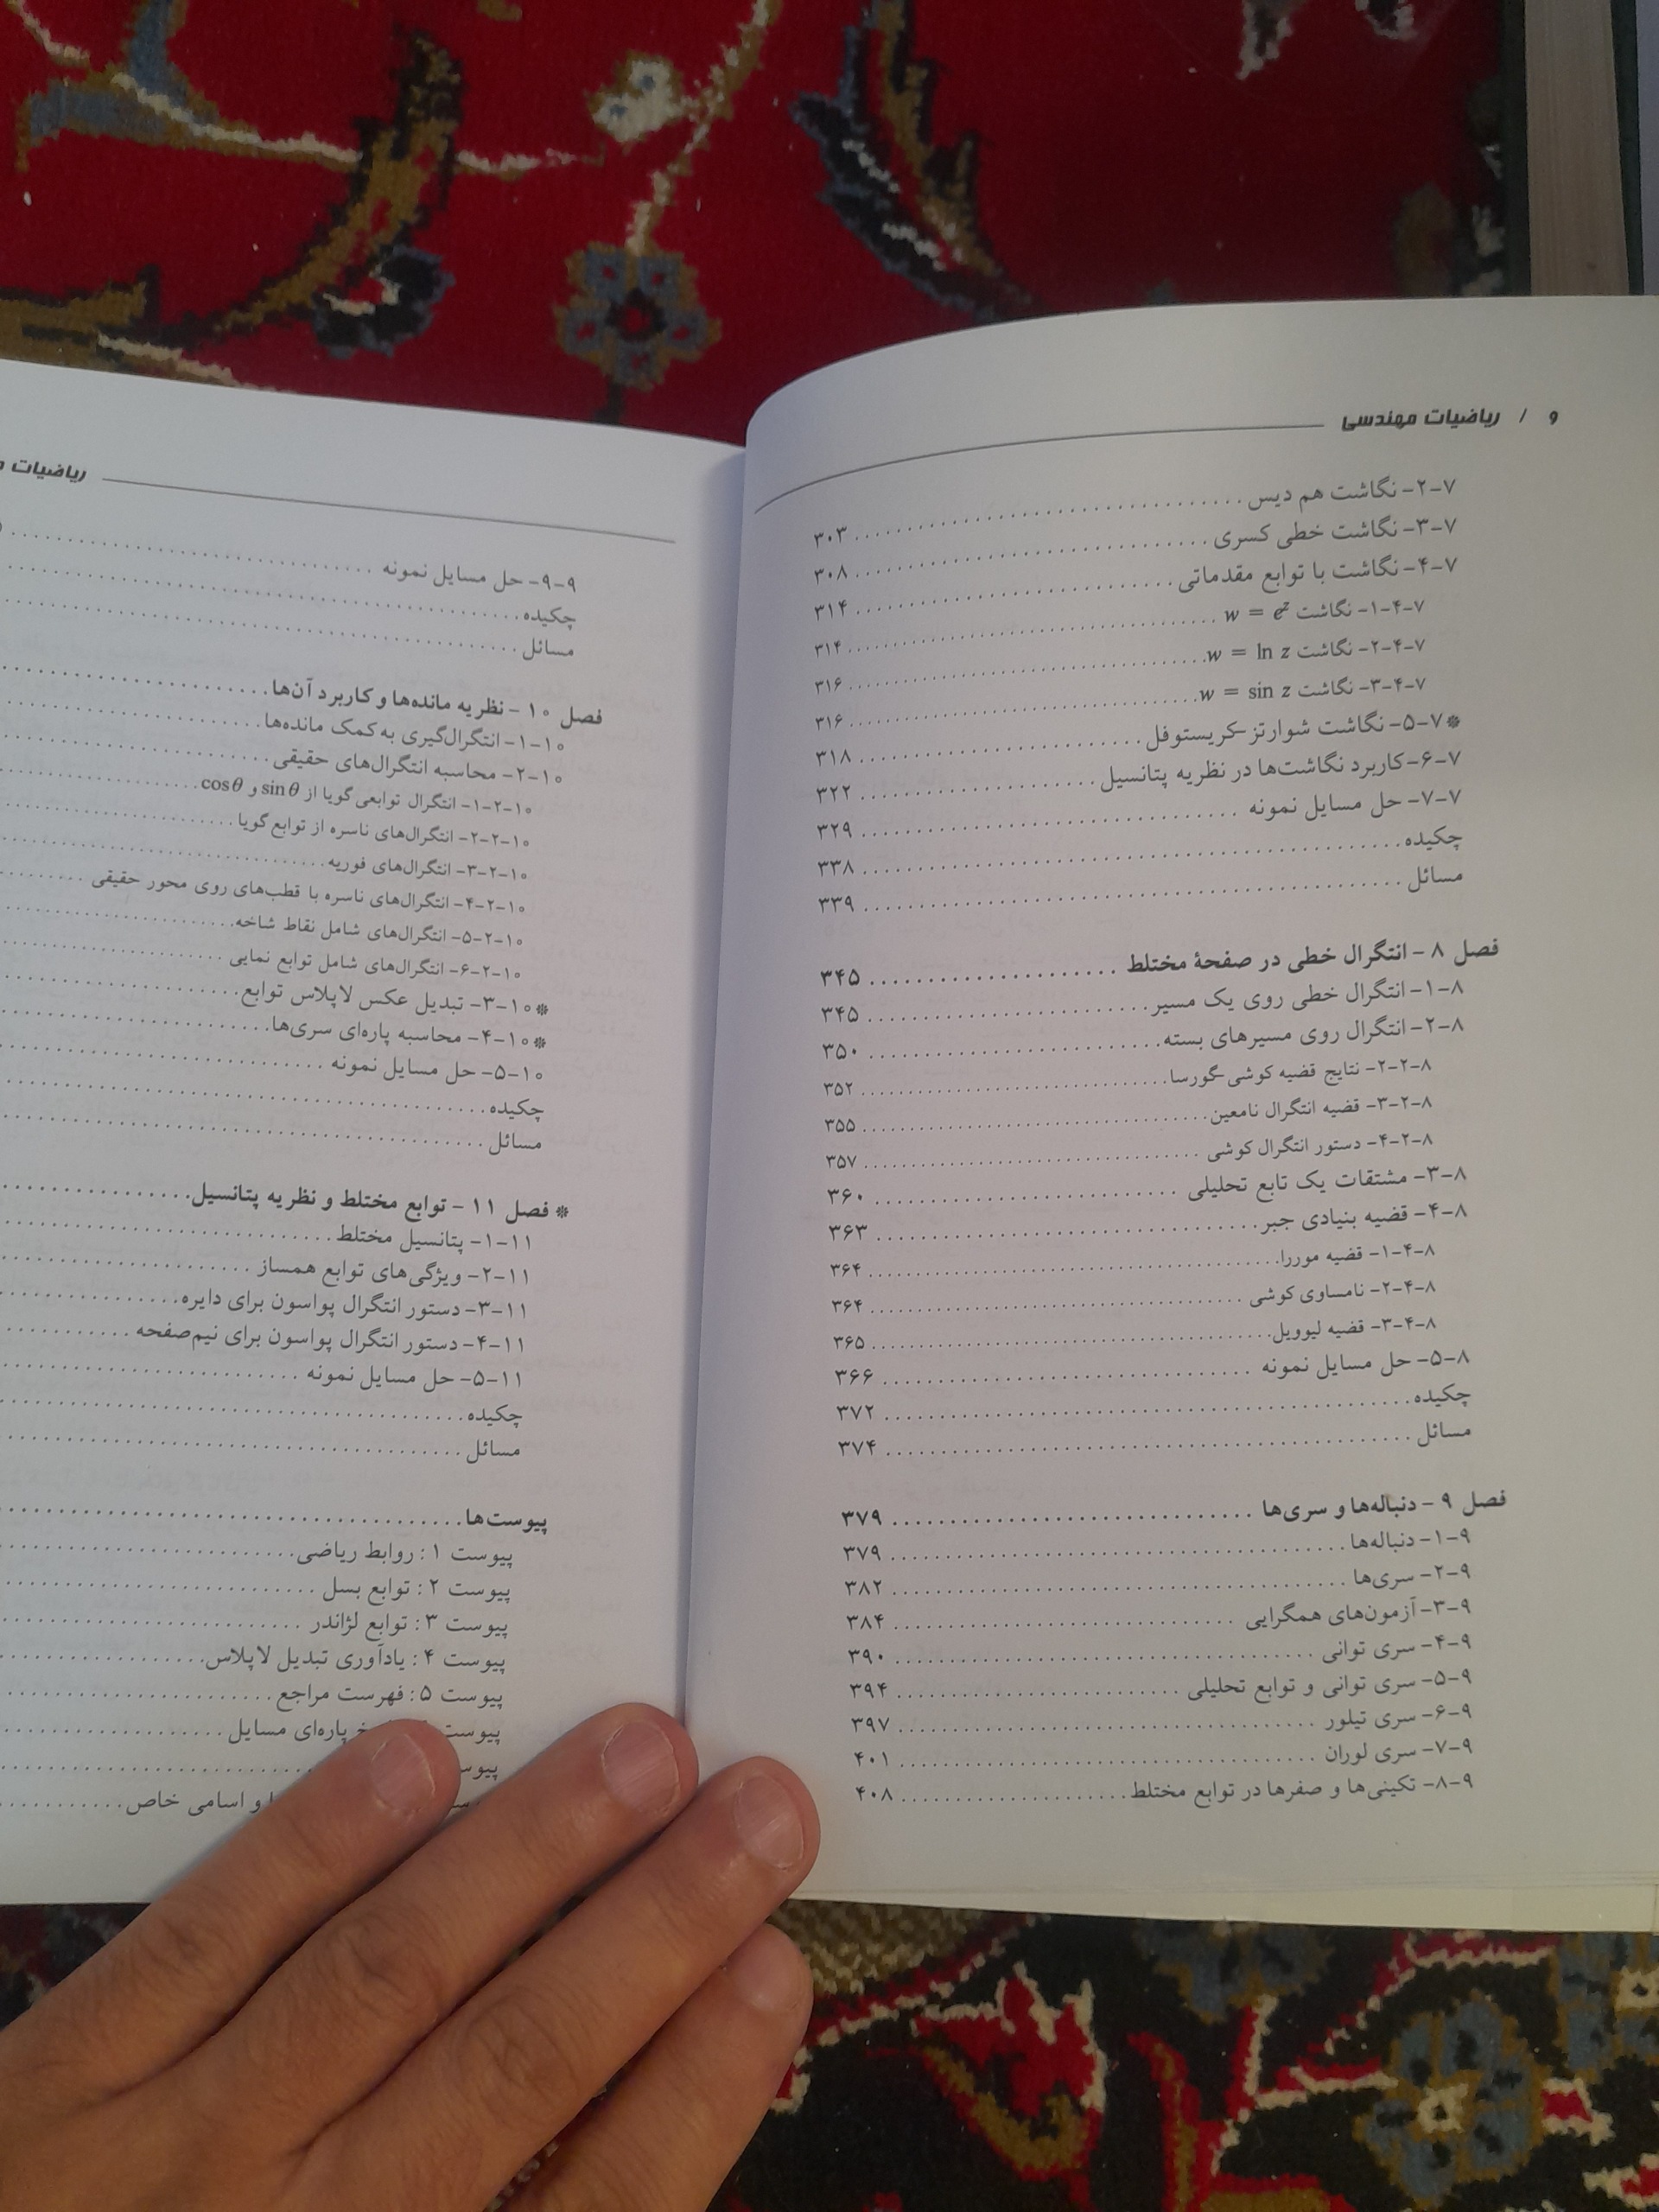 و / ریاضیات مهندسی
۷-۲- نگاشت هم دیس ........ ۳۰۳
۷-۳- نگاشت خطی کسری ........ ۳۰۸
۷-۴- نگاشت با توابع مقدماتی ........ ۳۱۴
۷-۴-۱- نگاشت w = e^z ........ ۳۱۴
۷-۴-۲- نگاشت w = ln z ........ ۳۱۶
۷-۴-۳- نگاشت w = sin z ........ ۳۱۶
*۷-۵- نگاشت شوارتز-کریستوفل ........ ۳۱۸
۷-۶- کاربرد نگاشت‌ها در نظریه پتانسیل ........ ۳۲۲
۷-۷- حل مسایل نمونه ........ ۳۲۹
چکیده ........ ۳۳۸
مسائل ........ ۳۳۹
فصل ۸ - انتگرال خطی در صفحهٔ مختلط ........ ۳۴۵
۸-۱- انتگرال خطی روی یک مسیر ........ ۳۴۵
۸-۲- انتگرال روی مسیرهای بسته ........ ۳۵۰
۸-۲-۲- نتایج قضیه کوشی-گورسا ........ ۳۵۲
۸-۲-۳- قضیه انتگرال نامعین ........ ۳۵۵
۸-۲-۴- دستور انتگرال کوشی ........ ۳۵۷
۸-۳- مشتقات یک تابع تحلیلی ........ ۳۶۰
۸-۴- قضیه بنیادی جبر ........ ۳۶۳
۸-۴-۱- قضیه موررا ........ ۳۶۴
۸-۴-۲- نامساوی کوشی ........ ۳۶۴
۸-۴-۳- قضیه لیوویل ........ ۳۶۵
۸-۵- حل مسایل نمونه ........ ۳۶۶
چکیده ........ ۳۷۲
مسائل ........ ۳۷۴
فصل ۹ - دنباله‌ها و سری‌ها ........ ۳۷۹
۹-۱- دنباله‌ها ........ ۳۷۹
۹-۲- سری‌ها ........ ۳۸۲
۹-۳- آزمون‌های همگرایی ........ ۳۸۴
۹-۴- سری توانی ........ ۳۹۰
۹-۵- سری توانی و توابع تحلیلی ........ ۳۹۴
۹-۶- سری تیلور ........ ۳۹۷
۹-۷- سری لوران ........ ۴۰۱
۹-۸- تکینی‌ها و صفرها در توابع مختلط ........ ۴۰۸
ریاضیات
۹-۹- حل مسایل نمونه ........
چکیده ........
مسائل ........
فصل ۱۰ - نظریه مانده‌ها و کاربرد آن‌ها ........
۱۰-۱- انتگرال‌گیری به کمک مانده‌ها ........
۱۰-۲- محاسبه انتگرال‌های حقیقی ........
۱۰-۲-۱- انتگرال توابعی گویا از sinθ و cosθ ........
۱۰-۲-۲- انتگرال‌های ناسره از توابع گویا ........
۱۰-۲-۳- انتگرال‌های فوریه ........
۱۰-۲-۴- انتگرال‌های ناسره با قطب‌های روی محور حقیقی ........
۱۰-۲-۵- انتگرال‌های شامل نقاط شاخه ........
۱۰-۲-۶- انتگرال‌های شامل توابع نمایی ........
*۱۰-۳- تبدیل عکس لاپلاس توابع ........
*۱۰-۴- محاسبه پاره‌ای سری‌ها ........
۱۰-۵- حل مسایل نمونه ........
چکیده ........
مسائل ........
* فصل ۱۱ - توابع مختلط و نظریه پتانسیل ........
۱۱-۱- پتانسیل مختلط ........
۱۱-۲- ویژگی‌های توابع همساز ........
۱۱-۳- دستور انتگرال پواسون برای دایره ........
۱۱-۴- دستور انتگرال پواسون برای نیم‌صفحه ........
۱۱-۵- حل مسایل نمونه ........
چکیده ........
مسائل ........
پیوست‌ها ........
پیوست ۱: روابط ریاضی ........
پیوست ۲: توابع بسل ........
پیوست ۳: توابع لژاندر ........
پیوست ۴: یادآوری تبدیل لاپلاس ........
پیوست ۵: فهرست مراجع ........
پیوست پاره‌ای مسایل ........
و اسامی خاص ........